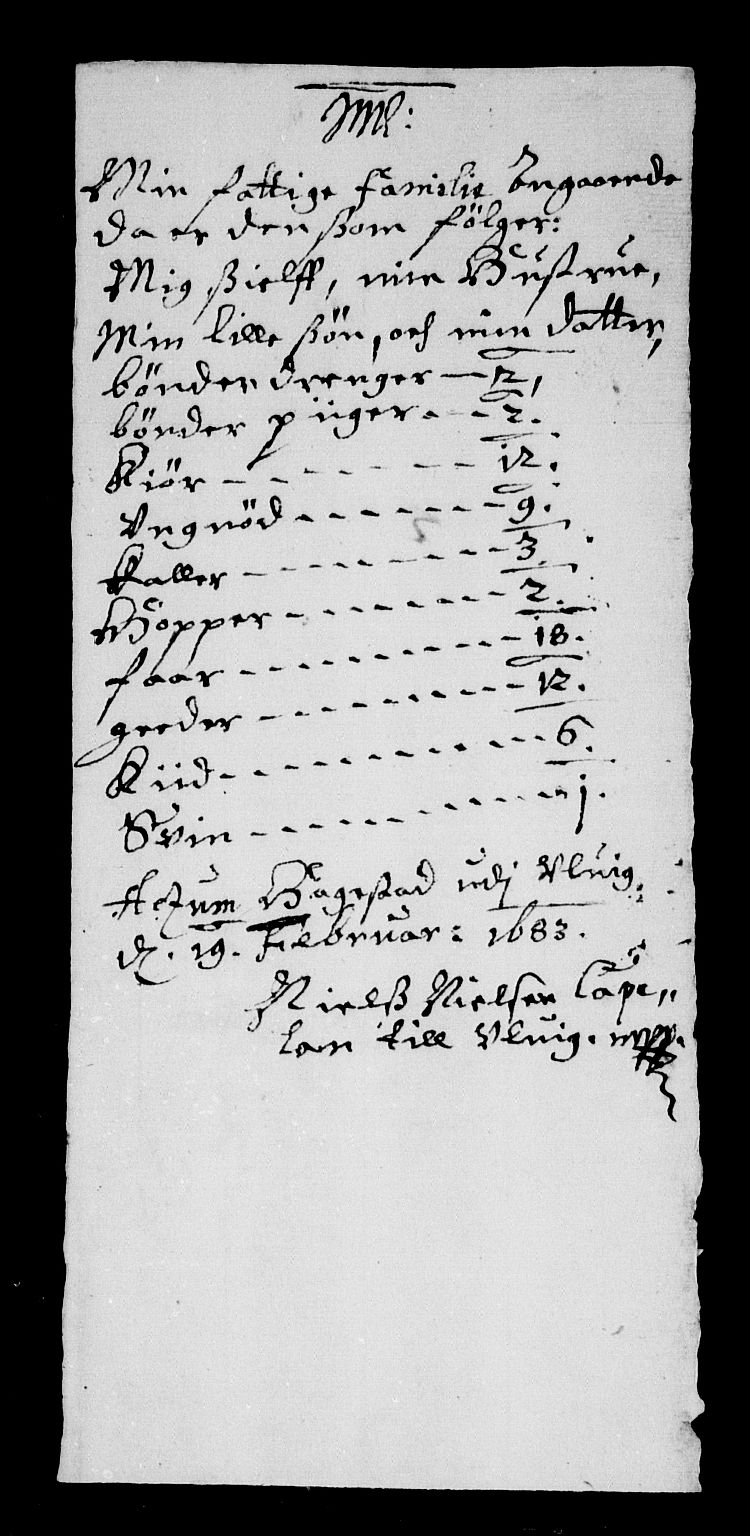 Min fattige Familie Angaaende
da er den ßom følger:
Mig ßielff, min Hustrue,
Min lille ßøn, och min datter,
bønder drenger — 12,
bønder piiger - - 2.
Kiør - - - - - - 12.
Vngnød - - - - - - 9.
Kaller - - - - - - 3.
Hopper - - - - - - 2.
faar - - - - - - 18.
geeder - - - - - - 12.
Kiid - - - - - - 6.
Svin - - - - - - 1.
Actum Hagestad udj Vluig.
d. 19. Februar: 1683.
Nielß Nielsen Cape,,
lan till Vluig. mpp.